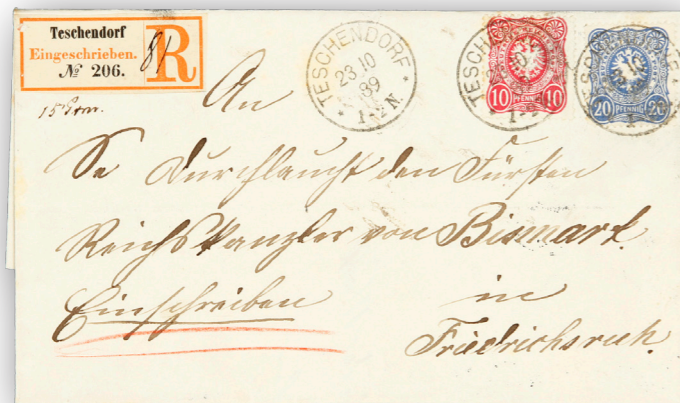 Teschendorf
Eingeschrieben.
№ 206.
R
81
TESCHENDORF
23 10
89
* 1-2 N. *
TESCHENDORF
10 PFENNIG 10
20 PFENNIG 20
15 Grm.
An
Se Durchlaucht den Fürsten
Reichskanzler von Bismark.
Einschreiben in
Friedrichsruh.